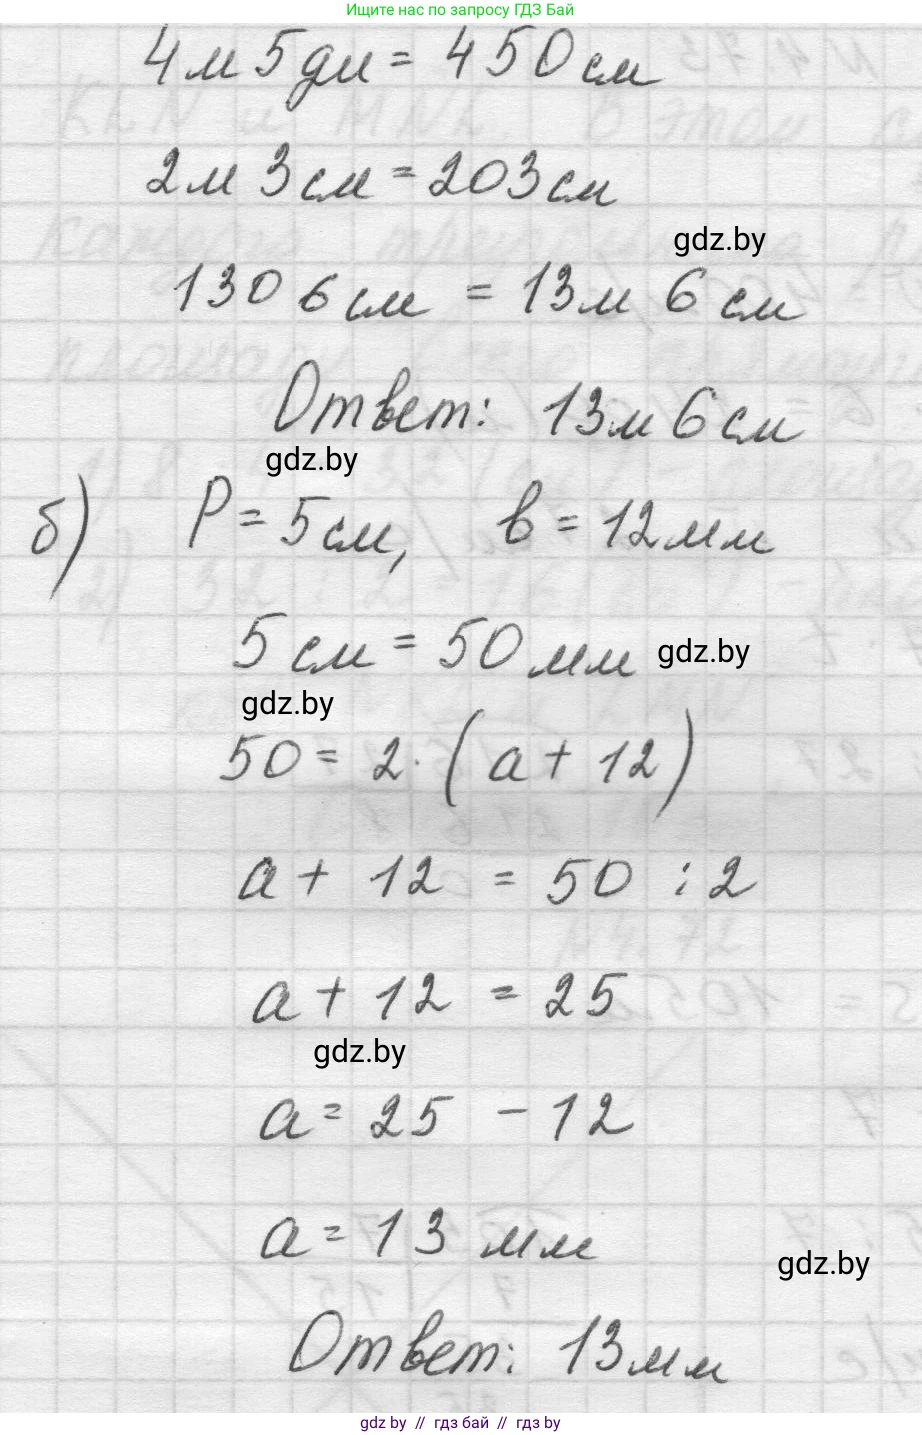 Ищите нас по запросу ГДЗ Бай
4м 5дм = 450см
2м 3см = 203см
gdz.by
1306см = 13м 6см
Ответ: 13м 6см
gdz.by
б) P = 5см, b = 12мм
5см = 50мм gdz.by
gdz.by
50 = 2 · (a + 12)
a + 12 = 50 : 2
a + 12 = 25
gdz.by
a = 25 - 12
a = 13 мм
gdz.by
Ответ: 13мм
gdz by // гдз бай // gdz by